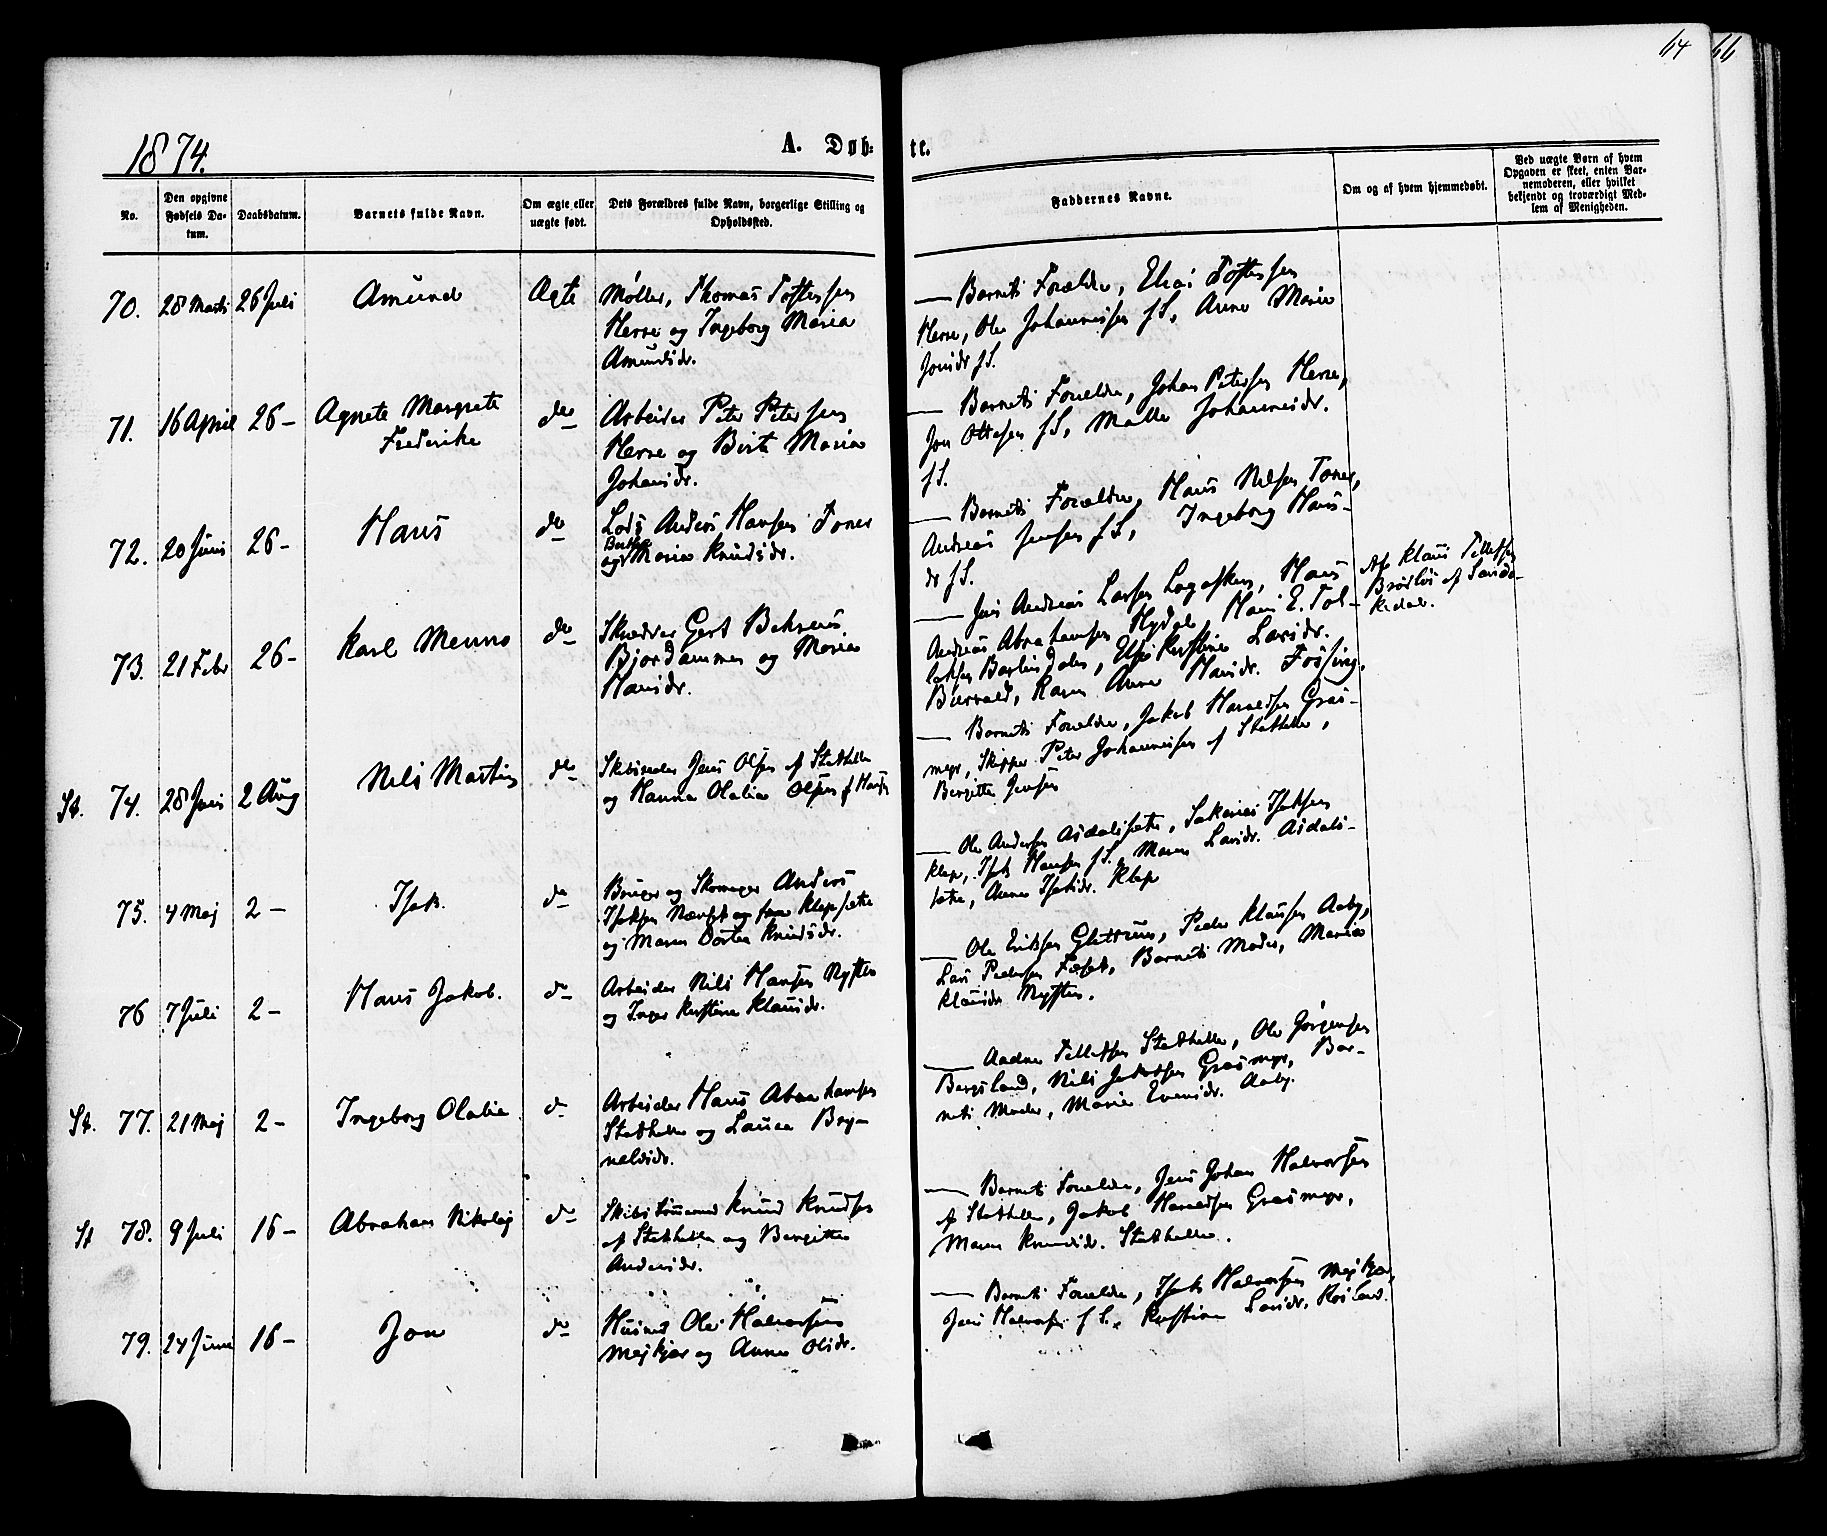 64
66
1874.
A. Døb-
te.
No.
Den opgivne
Fødsels Da-
tum.
Daabsdatum.
Barnets fulde Navn.
Om ægte eller
uægte født.
Dets Forældres fulde Navn, borgerlige Stilling og
Opholdssted.
Faddernes Navne.
Om og af hvem hjemmedøbt.
Ved uægte Børn af hvem
Opgaven er skeet, enten Bar-
nemoderen, eller hvilket
bekjendt og troværdigt Med-
lem af Menigheden.
70.
28 Marts
26 Juli
Amund
Ægte
Møller, Thomas Toftesen
Herre og Ingeborg Maria
Amundsdr.
— Barnets Forældre, Elias Toftesen
Herre, Ole Johannessen f S., Anne Marie
Jonsdr f S.
71.
16 April
26 –
Agnete Margrete
Frederike
do
Arbeider Peter Petersen
Herre og Birte Maria
Johansdr.
— Barnets Forældre, Johan Petersen Herre,
Jon Ottesen f S., Malle Johannesdr.
f S.
72.
20 Juni
26 –
Hans
do
Lods Anders Hansen Toner
Berthe
og Maria Knudsdr.
— Barnets Forældre, Hans Nilsen Toner,
Andreas Jensen f S., Ingeborg Hans-
dr f S.
73.
21 Febr
26 –
Karl Menno
do
Skrædder Gert Behrens
Bjordammen og Maria
Hansdr.
— Jens Andreas Larsen Lagesken, Hans
Andreas Abrahamsen Hydal, Hans E. Tol-
Else Kirstine Larsdr.
Karen Anne Hansdr. Fossing.
Af Klaus Tellefsen
af Sande-
kedal.
St.
74.
28 Juni
2 Aug
Nils Martin
do
Jens Olsen af Stathelle
og Hanna Olalia Olsen f Hansen
— Barnets Forældre, Jakob Haraldsen Gras-
myr, Skipper Peter Johannessen af Stathelle,
Birgitte Jensen
75.
4 Maj
2 –
Isak.
do
Bruger og Skomager Anders
Isaksen Klepsæte
og Maren Dortea Knudsdr.
— Ole Andersen Aasdalssæte, Sakarias Isaksen
Klep, Isak Hansen f S., Maren Larsdr. Aasdals-
sæte, Anne Isaksdr. Klep
76
7 Juli
2 –
Hans Jakob.
do
Arbeider Nils Hansen Nysten
og Inger Kirstine Klausdr.
— Ole Eriksen Glittrum, Peder Klausen Aaby,
Lars Pedersen Barnets Moder, Maria
Klausdr Nysten.
St.
77.
21 Maj
2 –
Ingeborg Olalia
do
Arbeider Hans Abrahamsen
Stathelle og Laura Bry-
nildsdr.
— Aadne Tellefsen Stathelle, Ole Jørgensen
Bergsland, Nils Jakobsen Grasmyr, Bar-
nets Moder, Maria Evensdr. Aaby.
St
78.
9 Juli
16 –
Abraham Nikolaj
do
Skibstømmermd Knud Knudsen
af Stathelle og Birgitte
Andersdr.
— Barnets Forældre, Jens Johan Halvorsen
af Stathelle, Jakob Haraldsen Grasmyr,
Maren Knudsdr. Stathelle.
79.
24 Juni
16 –
Jon
do
Husmd Ole Halvorsen
Mejkjær og Anne Olsdr.
— Barnets Forældre, Isak Halvorsen Mejkjær,
Jens Halvorsen f S., Kirstine Larsdr. Røsland.